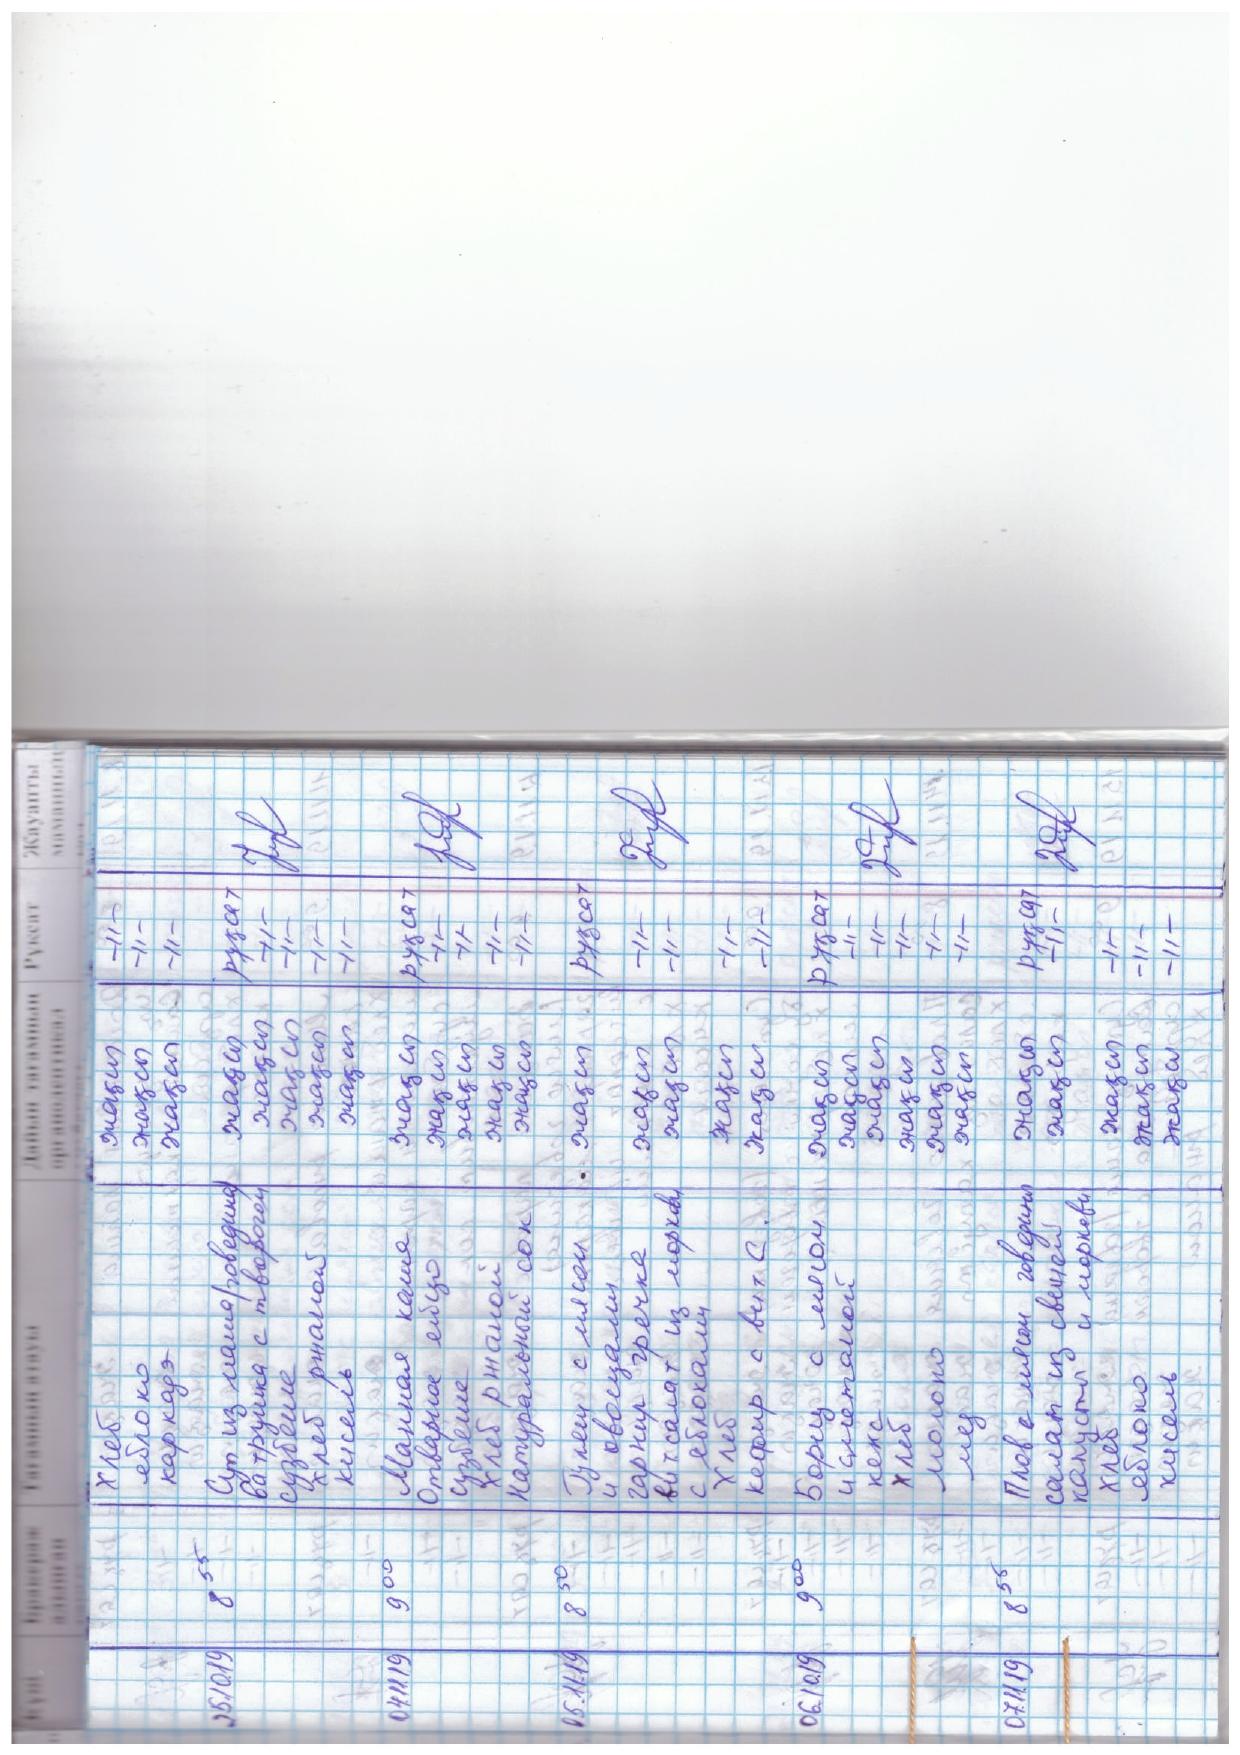 Күні Бракераж алынған Тағамның атауы Дайын тағамның органолептикал Рұқсат Жауапты маманның
Хлеб жақсы -11-
яблоко жақсы -11-
каркадэ жақсы -11-
25.10.19 8 55 Суп из маша/говядина жақсы рұқсат
ватрушка с творогом жақсы -11-
сузбеше жақсы -11-
хлеб ржаной жақсы -11-
кисель жақсы -11-
04.11.19 9 00 Манная каша жақсы рұқсат
Отварное яйцо жақсы -11-
сузбеше жақсы -11-
хлеб ржаной жақсы -11-
натуральный сок жақсы -11-
05.11.19 8 50 Гуляш с мясом жақсы рұқсат
и овощами
гарнир гречка жақсы -11-
вит салат из моркови жақсы -11-
с яблоками
Хлеб жақсы -11-
кефир с вит С. жақсы -11-
06.10.19 9 00 Борщ с мясом жақсы рұқсат
и сметаной жақсы -11-
кекс жақсы -11-
Хлеб жақсы -11-
молоко жақсы -11-
мед жақсы -11-
07.11.19 8 55 Плов с мясом говядины жақсы рұқсат
салат из свежей жақсы -11-
капусты и моркови
хлеб жақсы -11-
яблоко жақсы -11-
кисель жақсы -11-